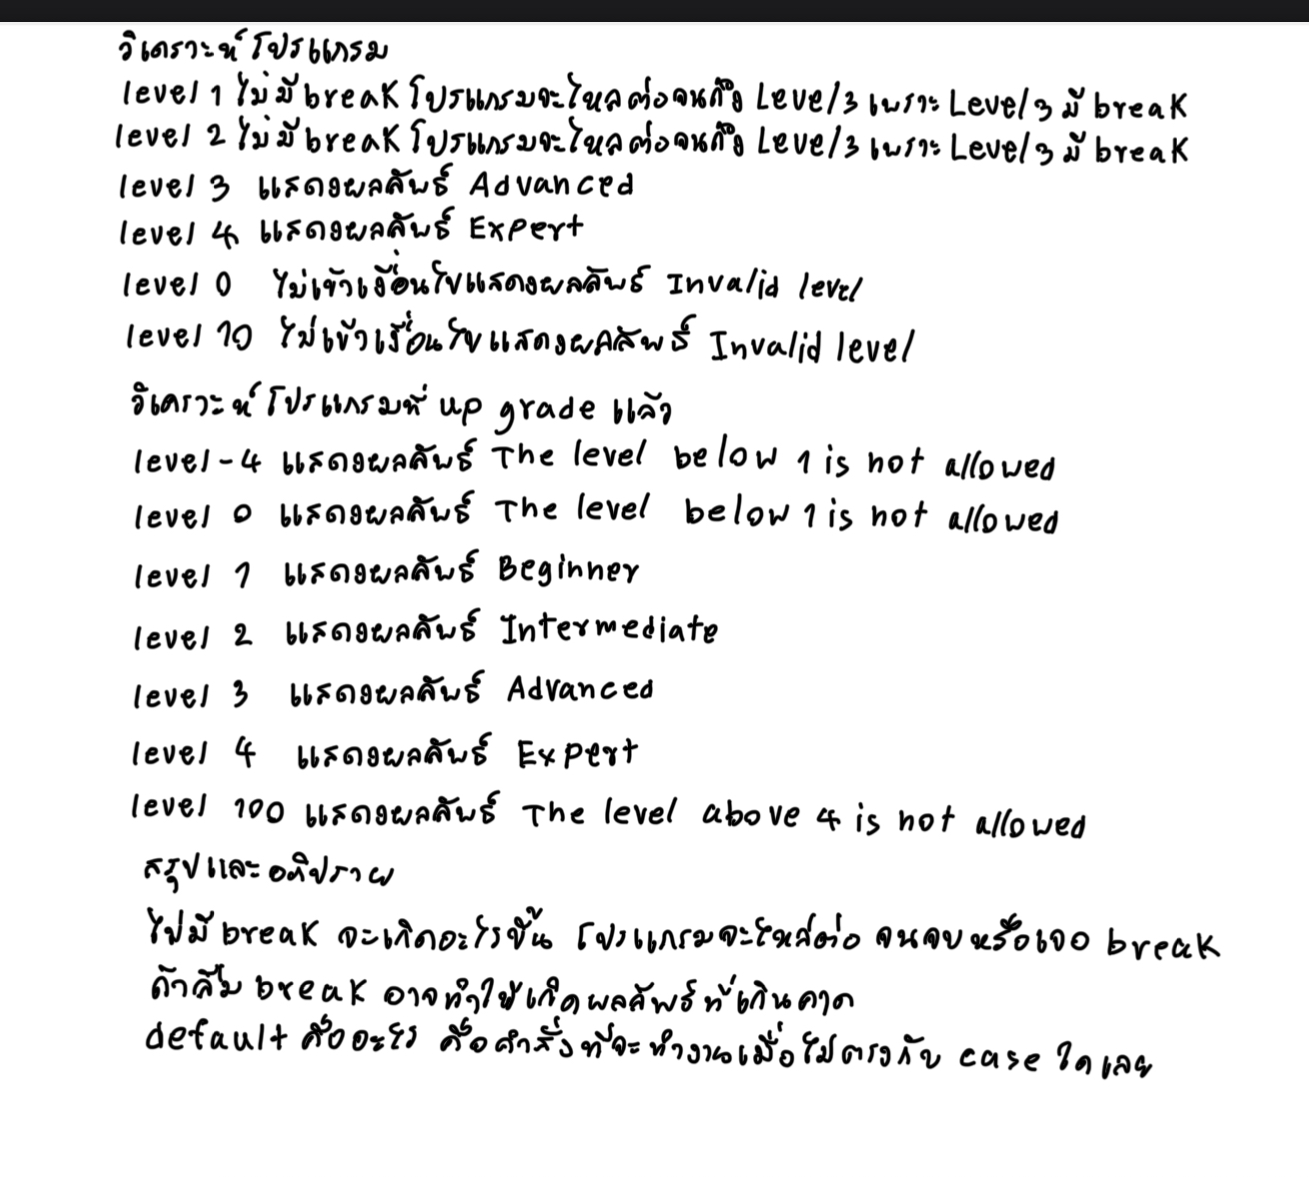 วิเคราะห์โปรแกรม
level 1 ไม่มี break โปรแกรมจะไหลต่อจนถึง Level 3 เพราะ Level 3 มี break
level 2 ไม่มี break โปรแกรมจะไหลต่อจนถึง Level 3 เพราะ Level 3 มี break
level 3 แสดงผลลัพธ์ Advanced
level 4 แสดงผลลัพธ์ Expert
level 0 ไม่เข้าเงื่อนไขแสดงผลลัพธ์ Invalid level
level 10 ไม่เข้าเงื่อนไขแสดงผลลัพธ์ Invalid level
วิเคราะห์โปรแกรมที่ up grade แล้ว
level -4 แสดงผลลัพธ์ The level below 1 is not allowed
level 0 แสดงผลลัพธ์ The level below 1 is not allowed
level 1 แสดงผลลัพธ์ Beginner
level 2 แสดงผลลัพธ์ Intermediate
level 3 แสดงผลลัพธ์ Advanced
level 4 แสดงผลลัพธ์ Expert
level 100 แสดงผลลัพธ์ The level above 4 is not allowed
สรุปและอภิปราย
ไม่มี break จะเกิดอะไรขึ้น โปรแกรมจะไหลต่อ จนจบหรือเจอ break
ถ้าลืม break อาจทำให้เกิดผลลัพธ์ที่เกินคาด
default คืออะไร คือคำสั่งที่จะทำงานเมื่อไม่ตรงกับ case ใดเลย